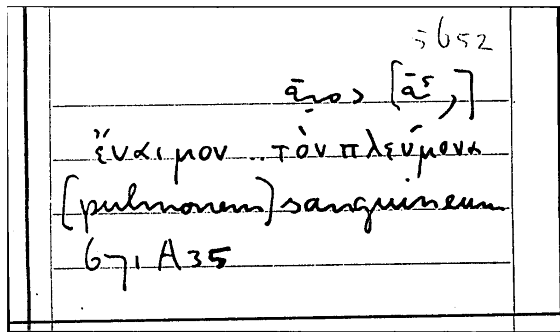 5652
ἔναιμον .. τὸν πλεύμονα
[pulmonem] sanguineum
671 A35